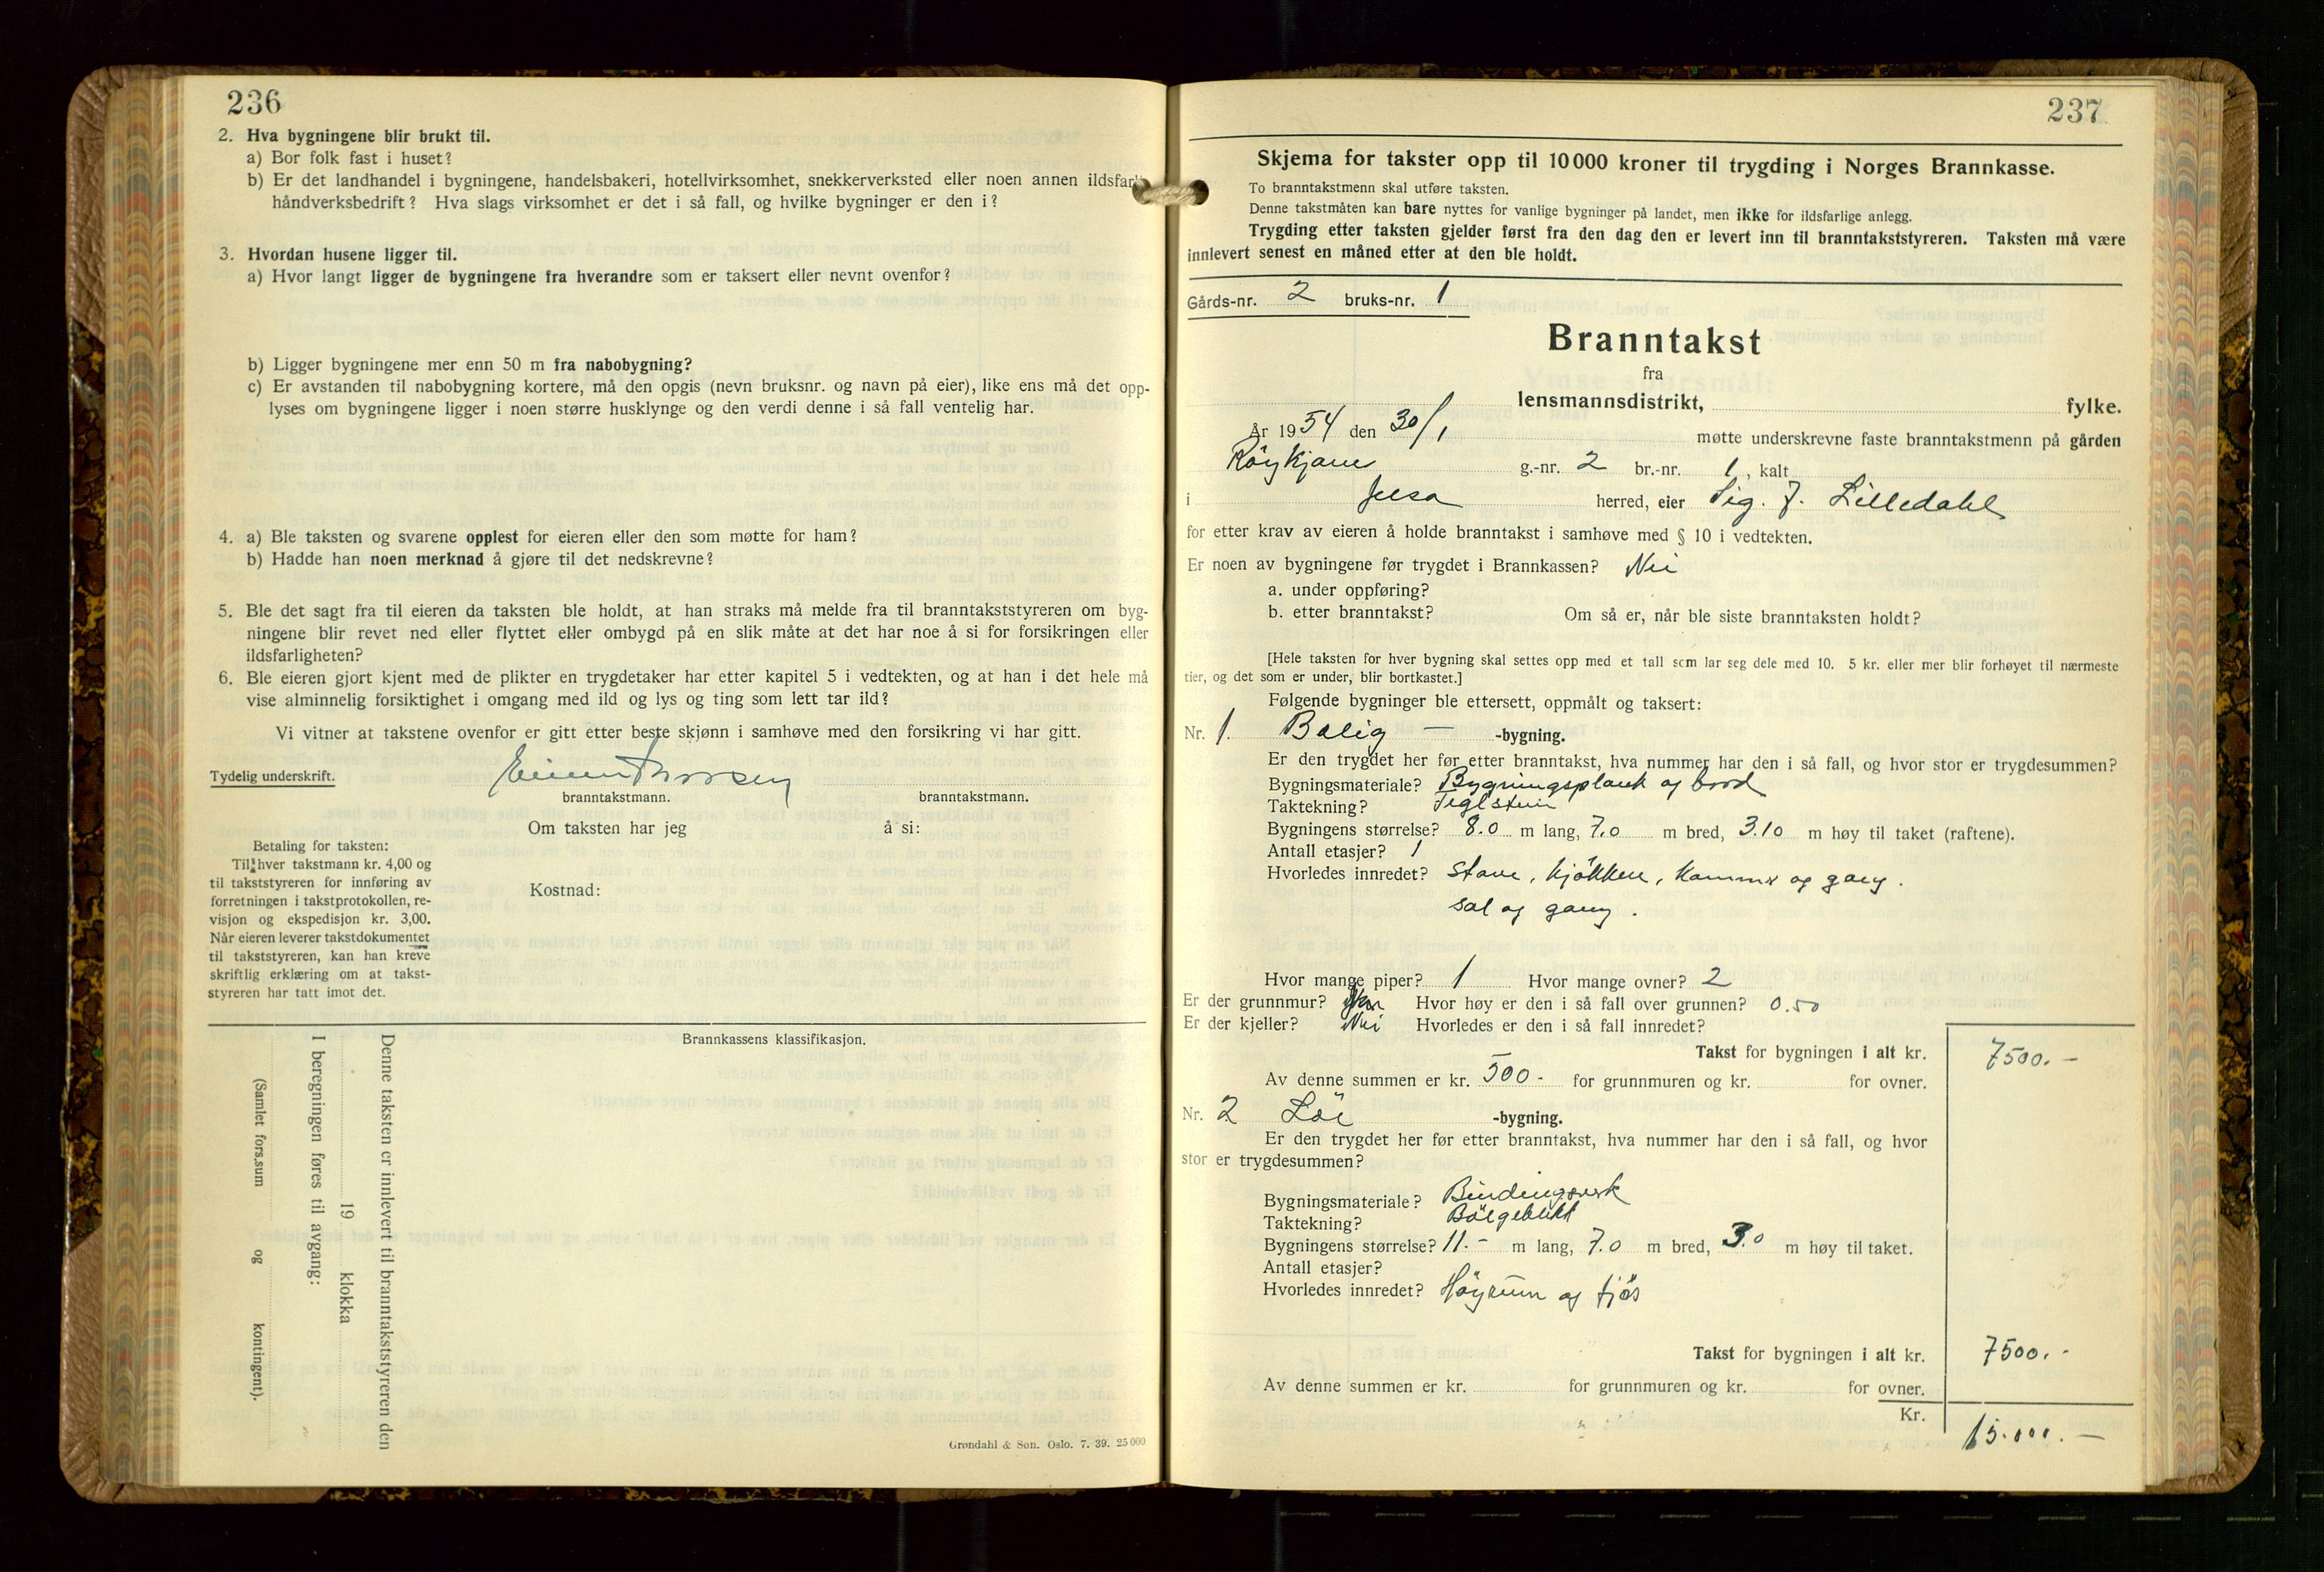 236
2. Hva bygningene blir brukt til.
a) Bor folk fast i huset?
b) Er det landhandel i bygningene, handelsbakeri, hotellvirksomhet, snekkerverksted eller noen annen ildsfarlig
håndverksbedrift? Hva slags virksomhet er det i så fall, og hvilke bygninger er den i?
3. Hvordan husene ligger til.
a) Hvor langt ligger de bygningene fra hverandre som er taksert eller nevnt ovenfor?
b) Ligger bygningene mer enn 50 m fra nabobygning?
c) Er avstanden til nabobygning kortere, må den opgis (nevn bruksnr. og navn på eier), like ens må det opp-
lyses om bygningene ligger i noen større husklynge og den verdi denne i så fall ventelig har.
4. a) Ble taksten og svarene opplest for eieren eller den som møtte for ham?
b) Hadde han noen merknad å gjøre til det nedskrevne?
5. Ble det sagt fra til eieren da taksten ble holdt, at han straks må melde fra til branntakststyreren om byg-
ningene blir revet ned eller flyttet eller ombygd på en slik måte at det har noe å si for forsikringen eller
ildsfarligheten?
6. Ble eieren gjort kjent med de plikter en trygdetaker har etter kapitel 5 i vedtekten, og at han i det hele må
vise alminnelig forsiktighet i omgang med ild og lys og ting som lett tar ild?
Vi vitner at takstene ovenfor er gitt etter beste skjønn i samhøve med den forsikring vi har gitt.
Tydelig underskrift.
branntakstmann. branntakstmann.
Om taksten har jeg å si:
Betaling for taksten:
Til hver takstmann kr. 4,00 og
til takststyreren for innføring av
forretningen i takstprotokollen, re-
visjon og ekspedisjon kr. 3,00.
Når eieren leverer takstdokumentet
til takststyreren, kan han kreve
skriftlig erklæring om at takst-
styreren har tatt imot det.
Kostnad:
Brannkassens klassifikasjon.
Denne taksten er innlevert til branntakststyreren den
19 klokka
I beregningen føres til avgang:
(Samlet fors.sum og kontingent).
Grøndahl & Søn. Oslo. 7. 39. 25 000
237
Skjema for takster opp til 10 000 kroner til trygding i Norges Brannkasse.
To branntakstmenn skal utføre taksten.
Denne takstmåten kan bare nyttes for vanlige bygninger på landet, men ikke for ildsfarlige anlegg.
Trygding etter taksten gjelder først fra den dag den er levert inn til branntakststyreren. Taksten må være
innlevert senest en måned etter at den ble holdt.
Gårds-nr. 2 bruks-nr. 1
Branntakst
fra
lensmannsdistrikt, fylke.
År 1954 den 30/1 møtte underskrevne faste branntakstmenn på gården
Röykjane g.-nr. 2 br.-nr. 1, kalt
i Jelsa herred, eier Sig. J. Lilledahl
for etter krav av eieren å holde branntakst i samhøve med § 10 i vedtekten.
Er noen av bygningene før trygdet i Brannkassen? Nei
a. under oppføring?
b. etter branntakst? Om så er, når ble siste branntaksten holdt?
[Hele taksten for hver bygning skal settes opp med et tall som lar seg dele med 10. 5 kr. eller mer blir forhøyet til nærmeste
tier, og det som er under, blir bortkastet.]
Følgende bygninger ble ettersett, oppmålt og taksert:
Nr. 1. Bolig — -bygning.
Er den trygdet her før etter branntakst, hva nummer har den i så fall, og hvor stor er trygdesummen?
Bygningsmateriale? Bygningsplank og bord
Taktekning? Teglstein
Bygningens størrelse? 8.0 m lang, 7.0 m bred, 3.10 m høy til taket (raftene).
Antall etasjer? 1
Hvorledes innredet? Stove, kjökken, kammer og gang.
Sal og gang.
Hvor mange piper? 1 Hvor mange ovner? 2
Er der grunnmur? Hvor høy er den i så fall over grunnen? 0.50
Er der kjeller? Nei Hvorledes er den i så fall innredet?
Takst for bygningen i alt kr. 7500.-
Av denne summen er kr. 500- for grunnmuren og kr. for ovner.
Nr. 2 Löe -bygning.
Er den trygdet her før etter branntakst, hva nummer har den i så fall, og hvor
stor er trygdesummen?
Bygningsmateriale? Bindingsverk
Taktekning? Bölgeblikk
Bygningens størrelse? 11.- m lang, 7.0 m bred, 3.0 m høy til taket.
Antall etasjer?
Hvorledes innredet? Höyrum og fjös
Takst for bygningen i alt kr. 7500.-
Av denne summen er kr. for grunnmuren og kr. for ovner.
Kr. 15.000.-